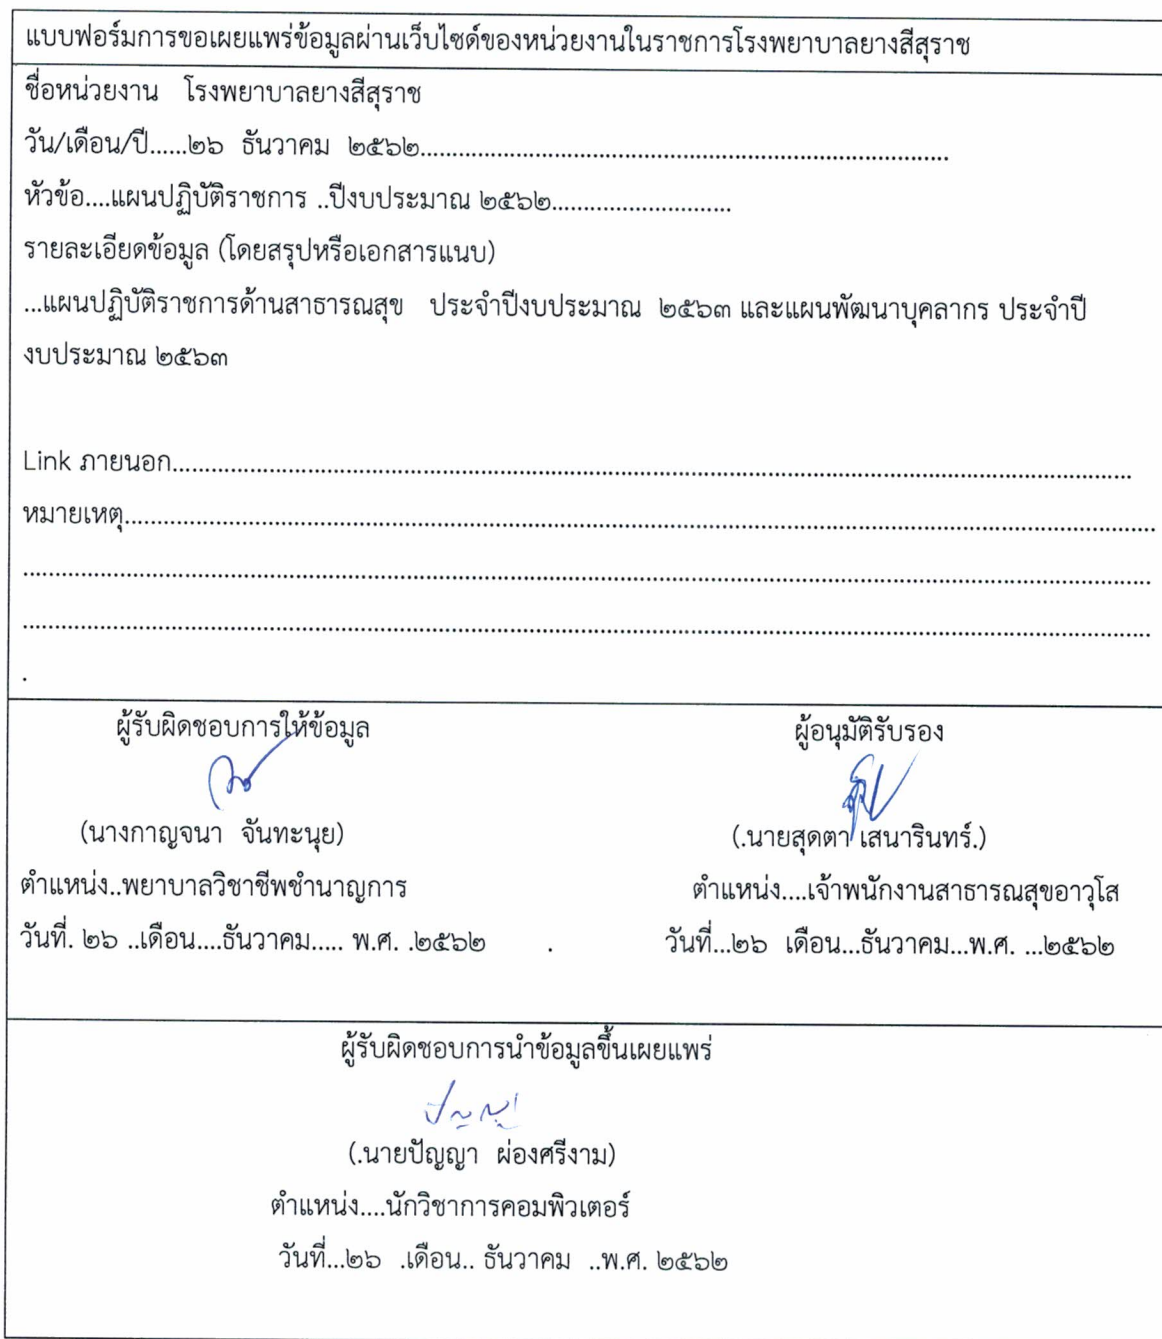 แบบฟอร์มการขอเผยแพร่ข้อมูลผ่านเว็บไซด์ของหน่วยงานในราชการโรงพยาบาลยางสีสุราช
ชื่อหน่วยงาน โรงพยาบาลยางสีสุราช
วัน/เดือน/ปี......๒๖ ธันวาคม ๒๕๖๒....................................................................................
หัวข้อ....แผนปฏิบัติราชการ ..ปีงบประมาณ ๒๕๖๒............................
รายละเอียดข้อมูล (โดยสรุปหรือเอกสารแนบ)
...แผนปฏิบัติราชการด้านสาธารณสุข ประจำปีงบประมาณ ๒๕๖๓ และแผนพัฒนาบุคลากร ประจำปี
งบประมาณ ๒๕๖๓
Link ภายนอก......................................................................................................................................................
หมายเหตุ.................................................................................................................................................................
................................................................................................................................................................................
................................................................................................................................................................................
.
ผู้รับผิดชอบการให้ข้อมูล ผู้อนุมัติรับรอง
(นางกาญจนา จันทะนุย) (.นายสุดตา เสนารินทร์.)
ตำแหน่ง..พยาบาลวิชาชีพชำนาญการ ตำแหน่ง....เจ้าพนักงานสาธารณสุขอาวุโส
วันที่. ๒๖ ..เดือน....ธันวาคม..... พ.ศ. .๒๕๖๒ . วันที่...๒๖ เดือน...ธันวาคม...พ.ศ. ...๒๕๖๒
ผู้รับผิดชอบการนำข้อมูลขึ้นเผยแพร่
ปัญญา
(.นายปัญญา ผ่องศรีงาม)
ตำแหน่ง....นักวิชาการคอมพิวเตอร์
วันที่...๒๖ .เดือน.. ธันวาคม ..พ.ศ. ๒๕๖๒